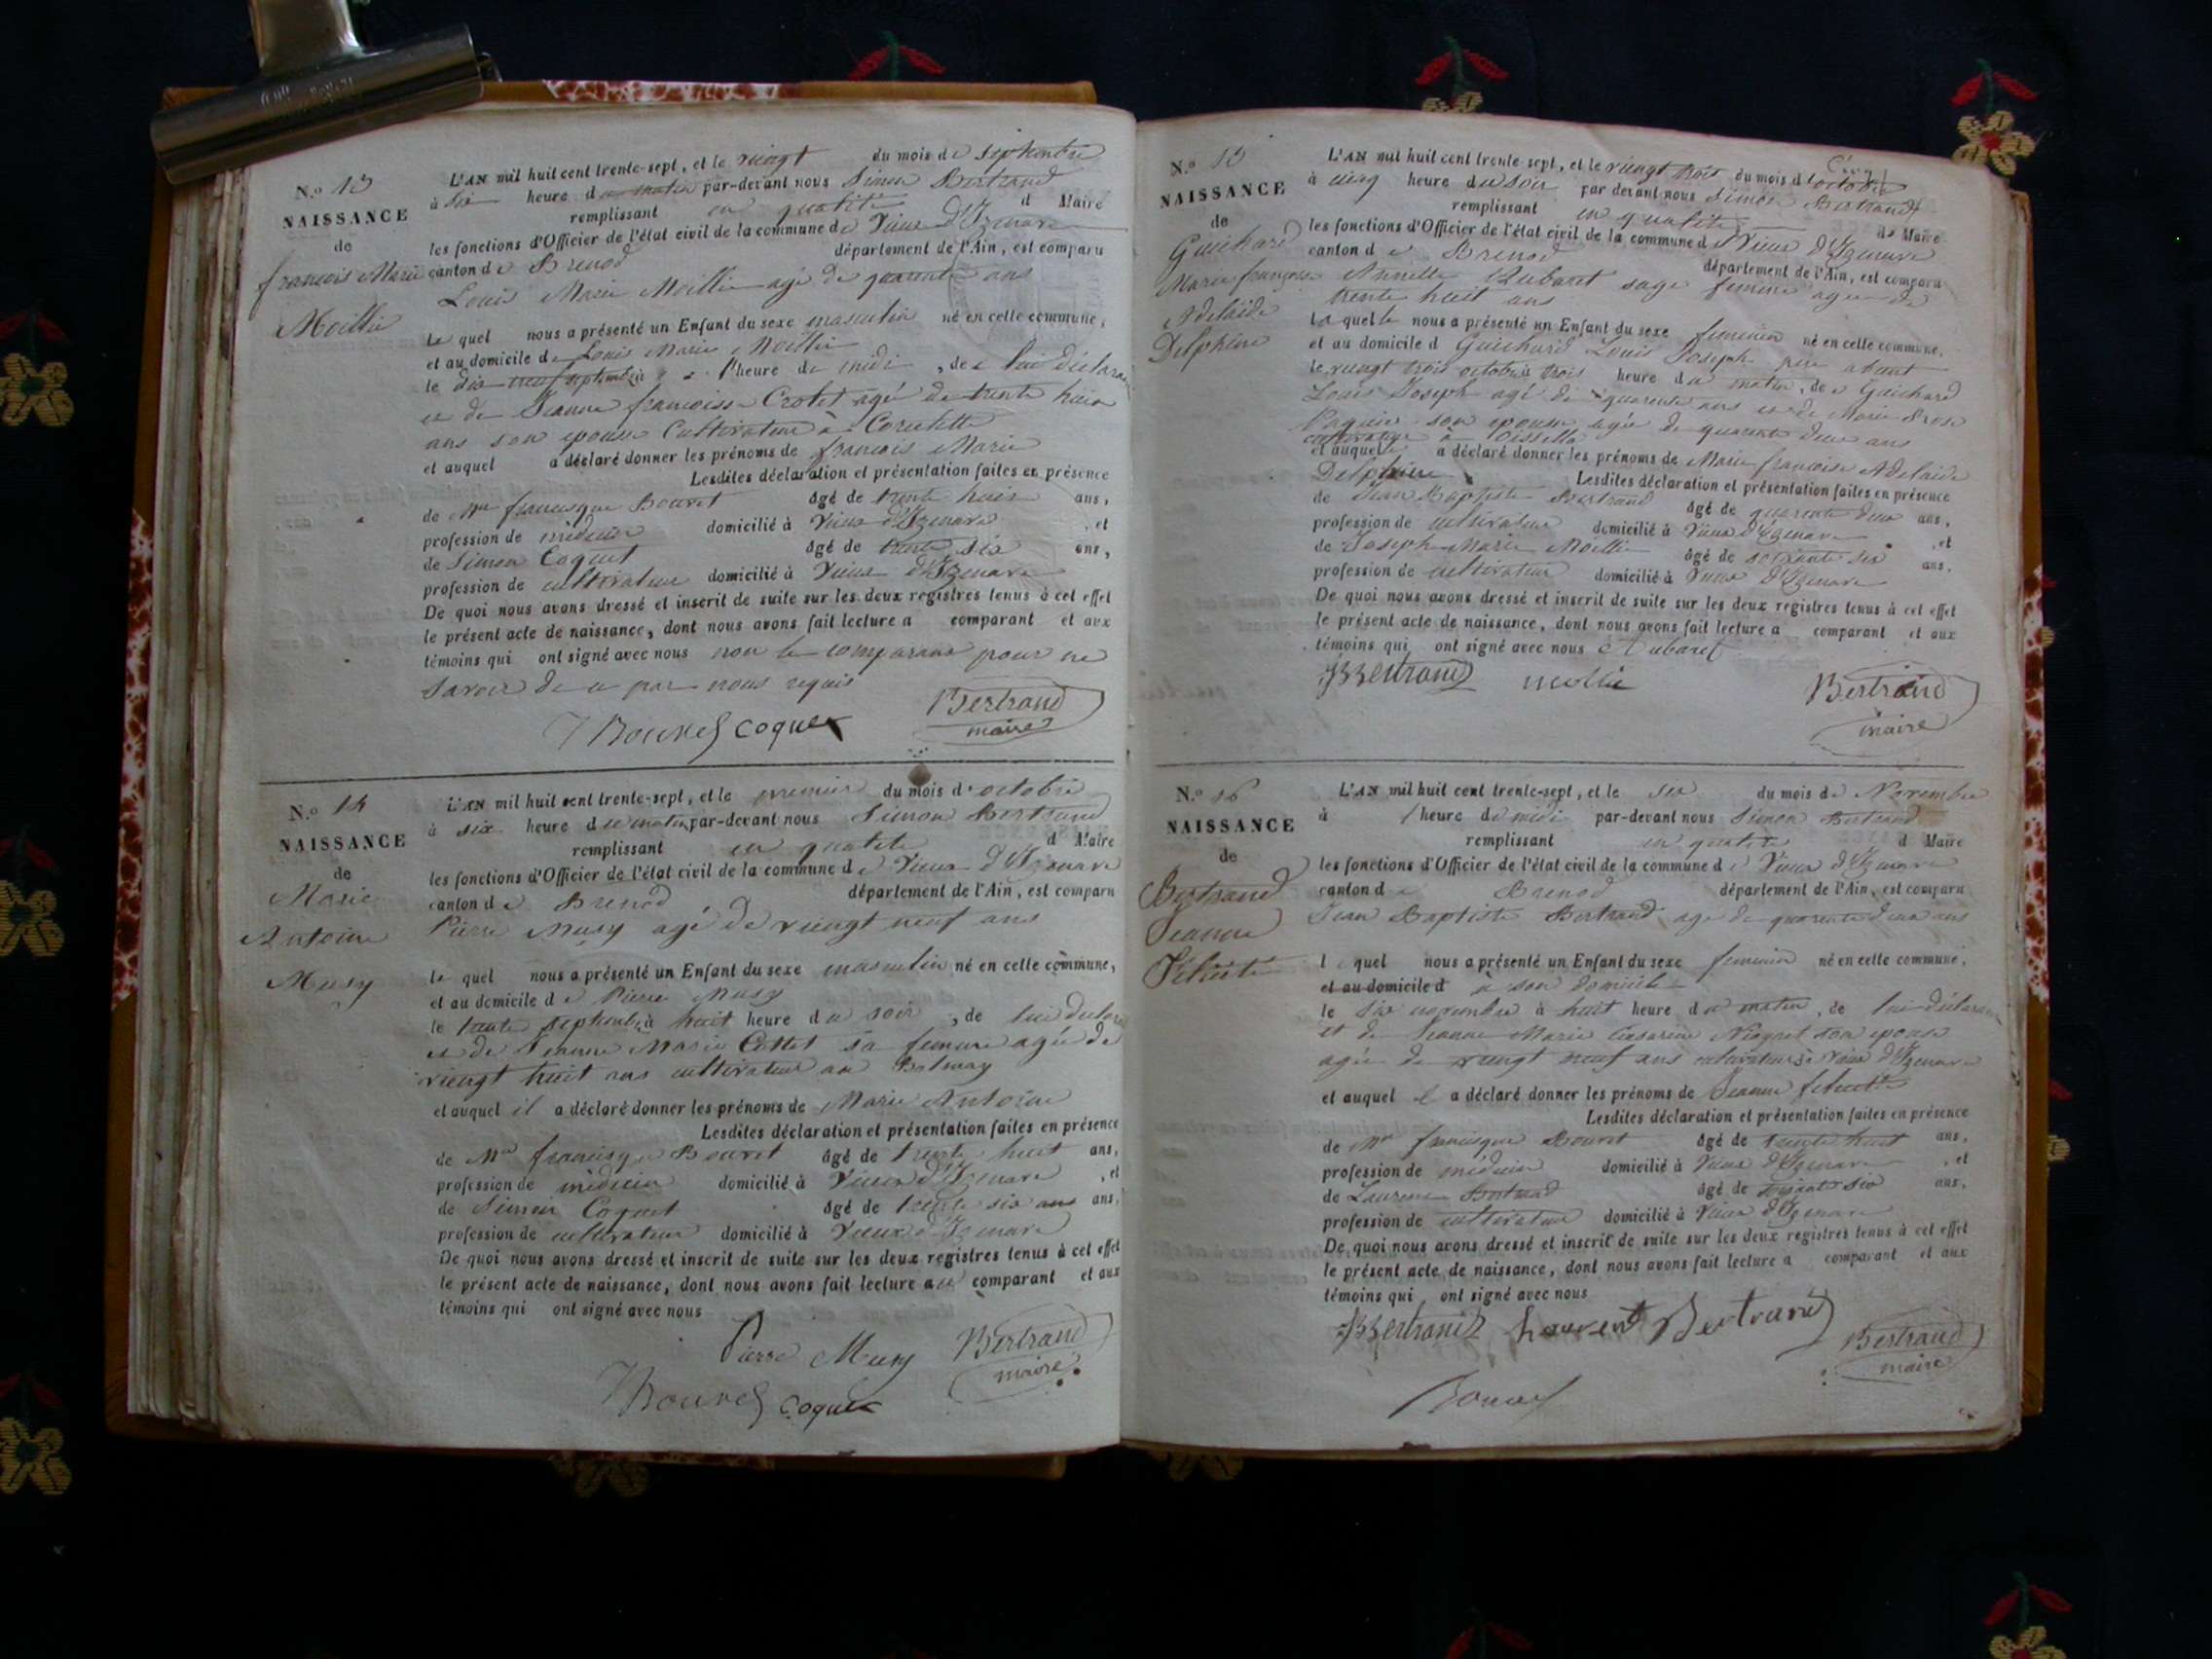 N.o 13
NAISSANCE
de
françois Marie
Moillié
L'AN mil huit cent trente-sept, et le vingt du mois de septembre
à six heure du matin par-devant nous Simon Bertrand
remplissant en qualité d Maire
les fonctions d'Officier de l'état civil de la commune de Vieux d'Izenave
canton de Brenod département de l'Ain, est comparu
Louis Marie Moillié agé de quarente ans
Le quel nous a présenté un Enfant du sexe masculin né en celle commune,
et au domicile de Louis Marie Moillié
le dix neuf septembre à l'heure de midi, de lui déclarant
et de Jeanne françoise Crotet agé de trente huit
ans son epouse Cultivateur à Corcelette
et auquel a déclaré donner les prénoms de françois Marie
Lesdites déclaration et présentation faites en présence
de Mr francisque Bouvet âgé de trente huit ans,
profession de médecin domicilié à Vieux d'Izenave, et
de Simon Coquet âgé de trente six ans,
profession de cultivateur domicilié à Vieux d'Izenave
De quoi nous avons dressé et inscrit de suite sur les deux registres tenus à cet effet
le présent acte de naissance, dont nous avons fait lecture a comparant et aux
témoins qui ont signé avec nous non le comparant pour ne
savoir de ce par nous requis
Bouvet Coquet Bertrand
maire
N.o 14
NAISSANCE
de
Marie
Antoine
Musy
L'AN mil huit cent trente-sept, et le premier du mois d'octobre
à six heure du matin par-devant nous Simon Bertrand
remplissant en qualité d Maire
les fonctions d'Officier de l'état civil de la commune de Vieux d'Izenave
canton de Brenod département de l'Ain, est comparu
Pierre Musy agé de vingt neuf ans
le quel nous a présenté un Enfant du sexe masculin né en celle commune,
et au domicile de Pierre Musy
le trente septembre à huit heure du soir, de lui déclarant
et de Jeanne Marie Cottet sa femme agée de
vingt huit ans cultivateur au Balmay
et auquel il a déclaré donner les prénoms de Marie Antoine
Lesdites déclaration et présentation faites en présence
de Mr francisque Bouvet âgé de trente huit ans,
profession de médecin domicilié à Vieux d'Izenave, et
de Simon Coquet âgé de trente six ans ans,
profession de cultivateur domicilié à Vieux d'Izenave
De quoi nous avons dressé et inscrit de suite sur les deux registres tenus à cet effet
le présent acte de naissance, dont nous avons fait lecture au comparant et aux
témoins qui ont signé avec nous
Pierre Musy Bertrand
maire
Bouvet Coquet
N.o 15
NAISSANCE
de
Guichard
Marie françoise
Adelaïde
Delphine
L'AN mil huit cent trente-sept, et le vingt trois du mois d'octobre
à cinq heure du soir par devant nous Simon Bertrand
remplissant en qualité de Maire
les fonctions d'Officier de l'état civil de la commune de Vieux d'Izenave
canton de Brenod département de l'Ain, est comparu
Aubaret sage femme agée de
trente huit ans
La quelle nous a présenté un Enfant du sexe feminin né en celle commune,
et au domicile d Guichard Louis Joseph père absent
le vingt trois octobre à trois heure du matin, de Guichard
Louis Joseph agé de quarente ans et de Marie Rose
son epouse agée de quarente deux ans
cultivateur à
et auquel a déclaré donner les prénoms de Marie françoise Adelaïde
Delphine Lesdites déclaration et présentation faites en présence
de Jean Baptiste Bertrand âgé de quarente deux ans,
profession de cultivateur domicilié à Vieux d'Izenave, et
de Joseph Marie Moillié âgé de soixante six ans.
profession de cultivateur domicilié à Vieux d'Izenave
De quoi nous avons dressé et inscrit de suite sur les deux registres tenus à cet effet
le présent acte de naissance, dont nous avons fait lecture a comparant et aux
témoins qui ont signé avec nous Aubaret
JBBertrand moillié Bertrand
maire
N.o 16
NAISSANCE
de
Bertrand
Jeanne
Félicité
L'AN mil huit cent trente-sept, et le six du mois de Novembre
à l heure de midi par-devant nous Simon Bertrand
remplissant en qualité d Maire
les fonctions d'Officier de l'état civil de la commune de Vieux d'Izenave
canton de Brenod département de l'Ain, est comparu
Jean Baptiste Bertrand agé de quarente deux ans
lequel nous a présenté un Enfant du sexe feminin né en celle commune,
et au domicile d à son domicile
le six novembre à huit heure du matin, de lui déclarant
et de Jeanne Marie Cesarine son epouse
agée de vingt neuf ans cultivateurs à Vieux d'Izenave
et auquel il a déclaré donner les prénoms de Jeanne felicité
Lesdites déclaration et présentation faites en présence
de Mr francisque Bouvet âgé de trente huit ans,
profession de médecin domicilié à Vieux d'Izenave, et
de Laurent Bertrand âgé de soixante six ans,
profession de cultivateur domicilié à Vieux d'Izenave
De quoi nous avons dressé et inscrit de suite sur les deux registres tenus à cet effet
le présent acte de naissance, dont nous avons fait lecture a comparant et aux
témoins qui ont signé avec nous
JBBertrand Laurent Bertrand Bertrand
maire
Bouvet